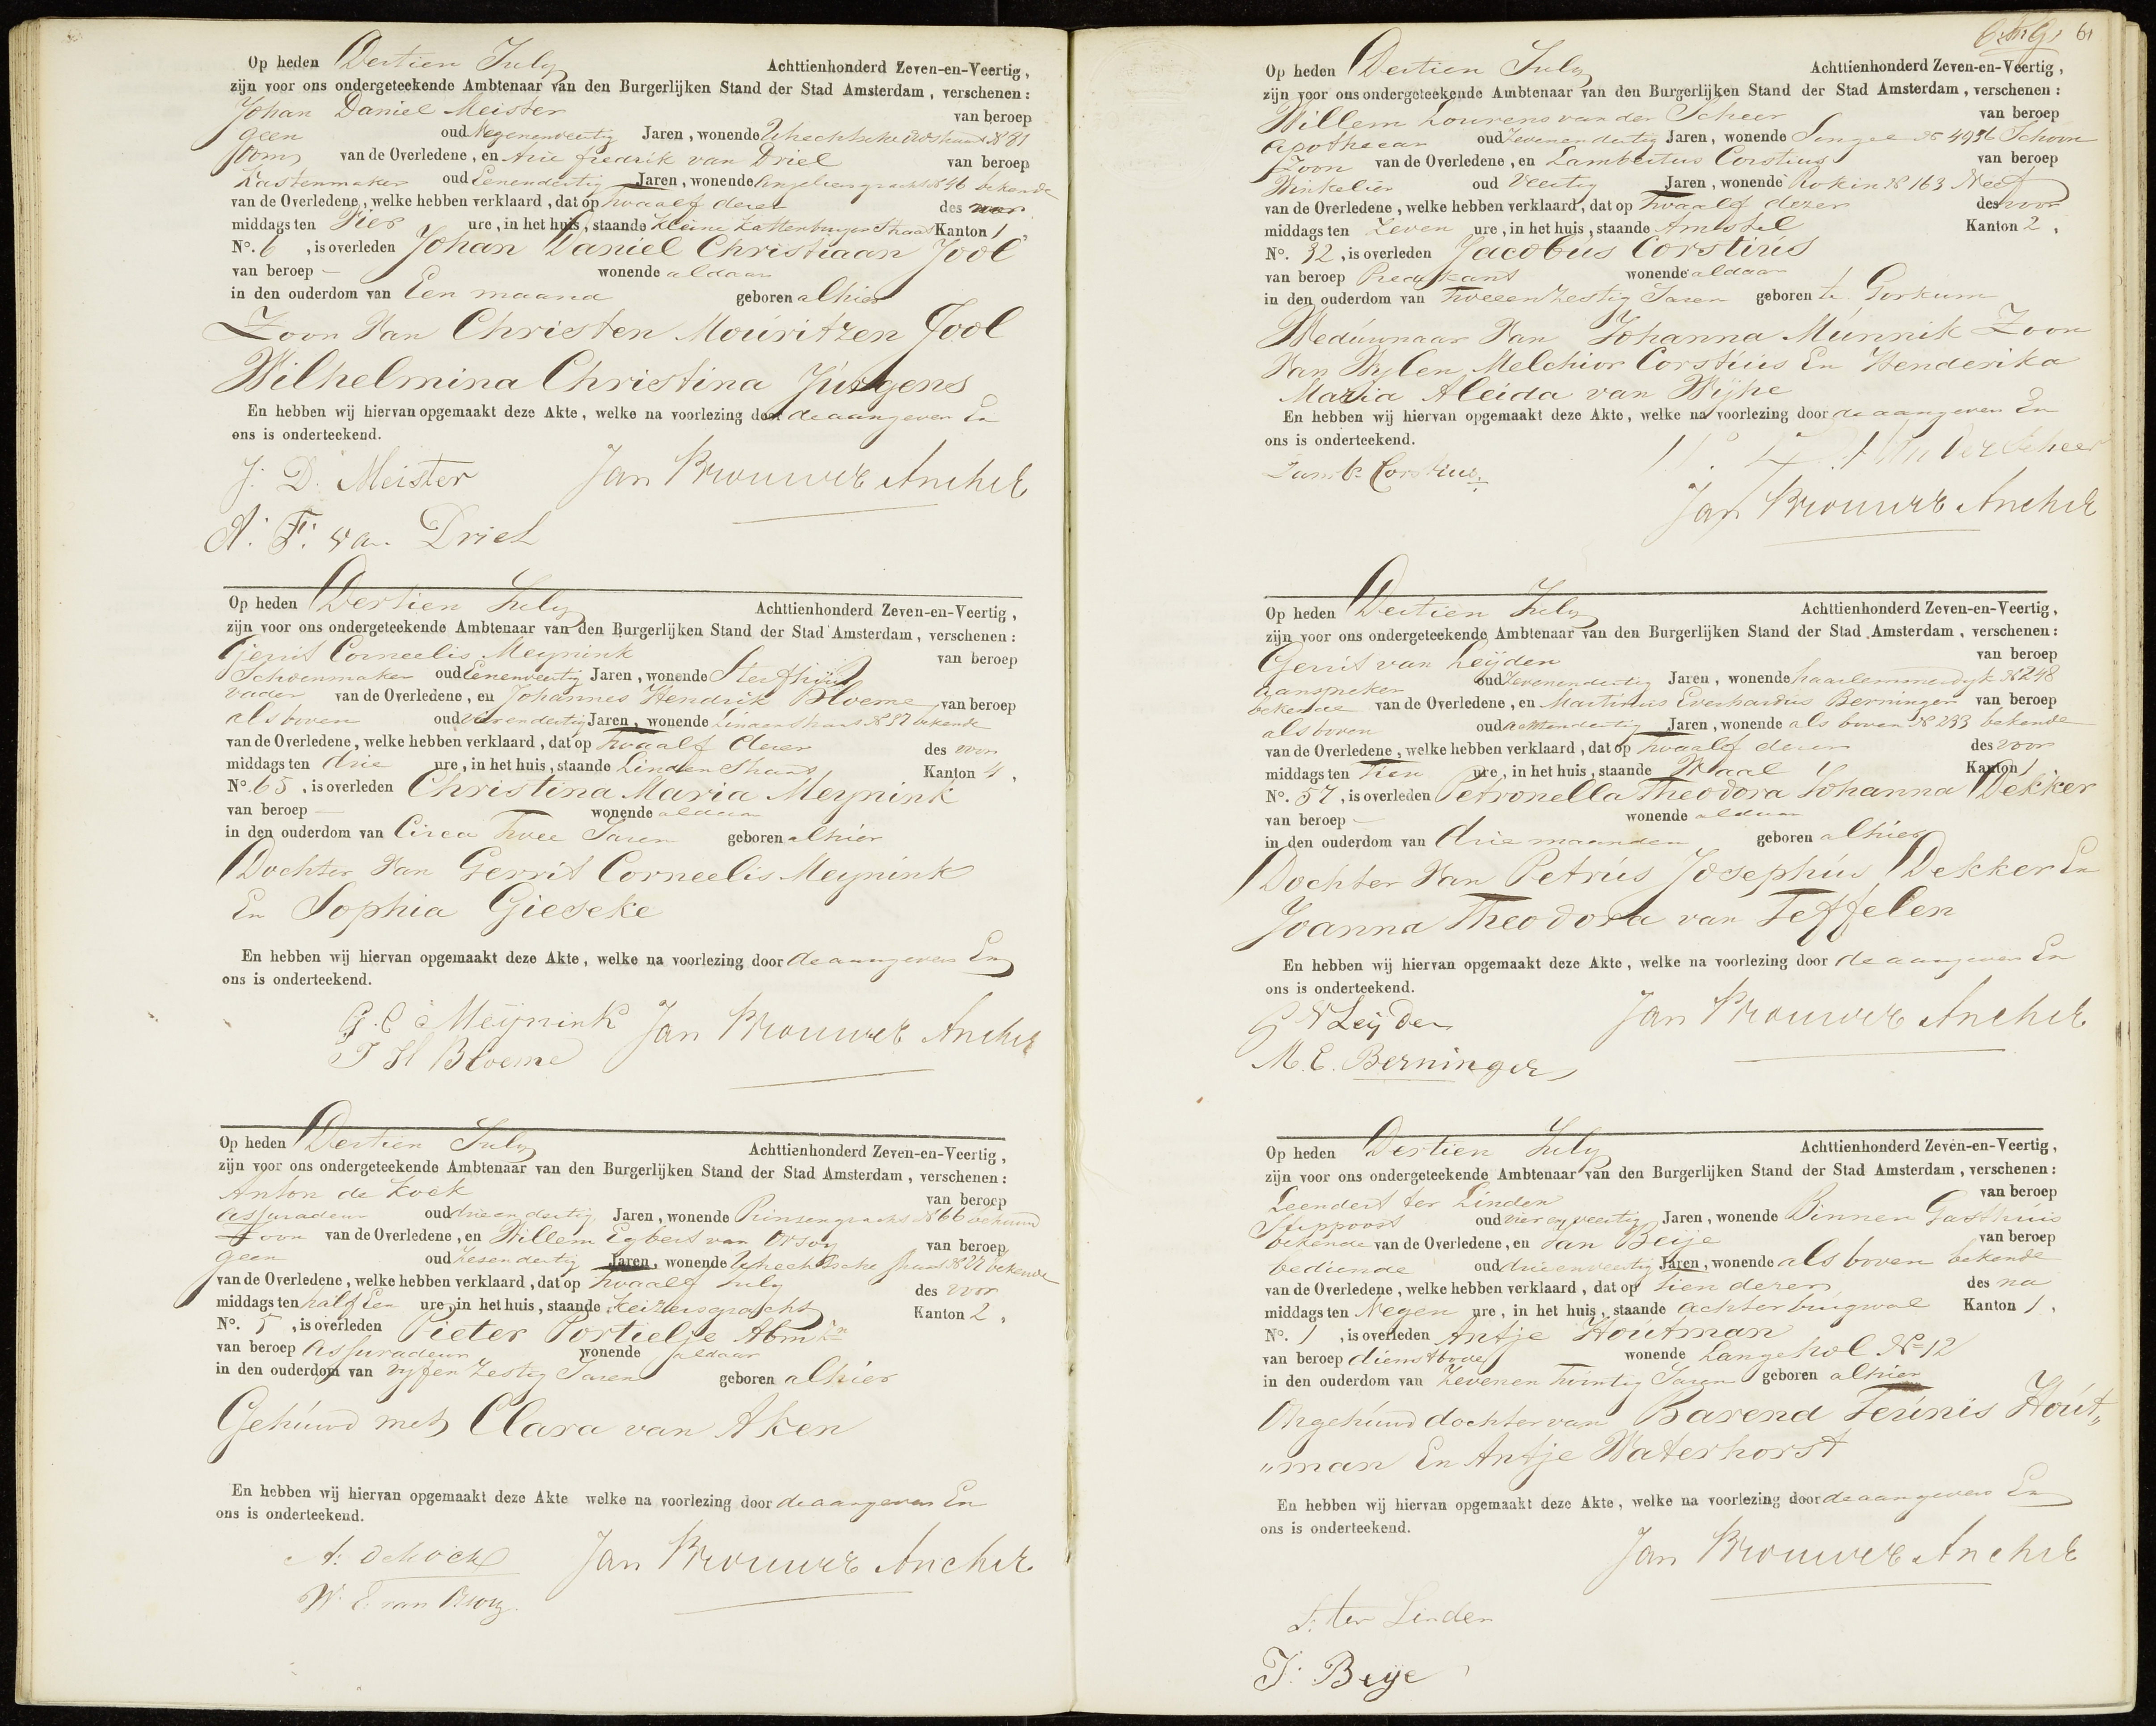 Op heden Dertien July Achttienhonderd Zeven-en-Veertig,
zijn voor ons ondergeteekende Ambtenaar van den Burgerlijken Stand der Stad Amsterdam, verschenen:
Johan Daniel Meister van beroep
geen oud Negenenveertig Jaren, wonende Utrechtsche N 81
Oom van de Overledene, en Arie fredrik van Driel van beroep
Kastenmaker oud Eenendertig Jaren, wonende N 46 bekende
van de Overledene, welke hebben verklaard, dat op twaalf dezer des
middags ten Vier ure, in het huis, staande Kleine Kattenburger Straat Kanton 1,
No. 6, is overleden Johan Daniel Christiaan Jool
van beroep — wonende aldaar
in den ouderdom van Een maand geboren alhier
Zoon Van Christen Mouritzen Jool
Wilhelmina Christina Jurgens
En hebben wij hiervan opgemaakt deze Akte, welke na voorlezing door de aangevers En
ons is onderteekend.
J: D. Meister Jan Brouwer Ancher
A: F: van Driel
Op heden Dertien July Achttienhonderd Zeven-en-Veertig,
zijn voor ons ondergeteekende Ambtenaar van den Burgerlijken Stand der Stad Amsterdam, verschenen:
Gerrit Corneelis Meynink van beroep
Schoenmaker oud Eenenveertig Jaren, wonende Sterfhuis
vader van de Overledene, en Johannes Hendrik Bloeme van beroep
als boven oud vierendertig Jaren, wonende Lindenstraat N 87 bekende
van de Overledene, welke hebben verklaard, dat op twaalf dezer des voor
middags ten drie ure, in het huis, staande Lindenstraat Kanton 4,
No. 65, is overleden Christina Maria Meynink
van beroep — wonende aldaar
in den ouderdom van Circa Twee Jaren geboren alhier
Dochter Van Gerrit Corneelis Meynink
En Sophia Gieseke
En hebben wij hiervan opgemaakt deze Akte, welke na voorlezing door de aangevers En
ons is onderteekend.
G. C Meijnink Jan Brouwer Ancher
J H Bloeme
Op heden Dertien July Achttienhonderd Zeven-en-Veertig,
zijn voor ons ondergeteekende Ambtenaar van den Burgerlijken Stand der Stad Amsterdam, verschenen:
Anton de Kock van beroep
Assuradeur oud drieendertig Jaren, wonende Prinsengracht N 66 behuwd
Zoon van de Overledene, en Willem Egbert van Orsoy van beroep
geen oud Zesendertig Jaren, wonende Utrechtsche straat bekende
van de Overledene, welke hebben verklaard, dat op twaalf July des voor
middags ten half Een ure, in het huis, staande Keizersgracht Kanton 2,
No. 5, is overleden Pieter Portielje Abm Zn
van beroep Assuradeur wonende aldaar
in den ouderdom van vyf en Zestig Jaren geboren alhier
Gehuwd met Clara van Aken
En hebben wij hiervan opgemaakt deze Akte welke na voorlezing door de aangevers En
ons is onderteekend.
A: de Kock Jan Brouwer Ancher
W. E. van Orsoy
61
Op heden Dertien July Achttienhonderd Zeven-en-Veertig,
zijn voor ons ondergeteekende Ambtenaar van den Burgerlijken Stand der Stad Amsterdam, verschenen:
Willem Lourens van der Scheer van beroep
apothecar oud Zevenendertig Jaren, wonende Singel Schoon
Zoon van de Overledene, en Lambertus Corstius van beroep
Winkelier oud Veertig Jaren, wonende Rokin N 163 Neef
van de Overledene, welke hebben verklaard, dat op Twaalf dezer des voor
middags ten Zeven ure, in het huis, staande Amstel Kanton 2,
No. 32, is overleden Jacobus Corstius
van beroep Predikant wonende aldaar
in den ouderdom van Tweeen Zestig Jaren geboren te Gorkum
Weduwnaar Van Johanna Munnik Zoon
Van Wylen Melchior Corstius En Henderika
Maria Aleida van Wijhe
En hebben wij hiervan opgemaakt deze Akte, welke na voorlezing door de aangevers En
ons is onderteekend.
W. L. van der Scheer
Lamb. Corstius
Jan Brouwer Ancher
Op heden Dertien July Achttienhonderd Zeven-en-Veertig,
zijn voor ons ondergeteekende Ambtenaar van den Burgerlijken Stand der Stad Amsterdam, verschenen:
Gerrit van Leijden van beroep
Aanspreker oud Zevenendertig Jaren, wonende haarlemmerdyk N 248
bekende van de Overledene, en Martinus Everhardus Berninger van beroep
als boven oud achtendertig Jaren, wonende als boven N 233 bekende
van de Overledene, welke hebben verklaard, dat op twaalf dezer des voor
middags ten Tien ure, in het huis, staande Waal Kanton 1
No. 57, is overleden Petronella Theodora Johanna Dekker
van beroep — wonende aldaar
in den ouderdom van drie maanden geboren alhier
Dochter Van Petrus Josephus Dekker En
Joanna Theodora van Teffelen
En hebben wij hiervan opgemaakt deze Akte, welke na voorlezing door de aangevers En
ons is onderteekend.
G V Leijden Jan Brouwer Ancher
M. E. Berninger
Op heden Dertien July Achttienhonderd Zeven-en-Veertig,
zijn voor ons ondergeteekende Ambtenaar van den Burgerlijken Stand der Stad Amsterdam, verschenen:
Leendert ter Linden van beroep
Suppoost oud vier en veertig Jaren, wonende Binnen Gasthuis
bekende van de Overledene, en Jan Beije van beroep
bediende oud drieenveertig Jaren, wonende als boven bekende
van de Overledene, welke hebben verklaard, dat op tien dezer des na
middags ten Negen ure, in het huis, staande achterburgwal Kanton 1,
No. 1, is overleden Antje Houtman
van beroep dienstbode wonende Langehol No 12
in den ouderdom van Zevenen Twintig Jaren geboren alhier
Ongehuwd dochter van Barend Teunis Hout„
„man En Antje Waterhorst
En hebben wij hiervan opgemaakt deze Akte, welke na voorlezing door de aangevers En
ons is onderteekend.
Jan Brouwer Ancher
L: ter Linden
J: Beije